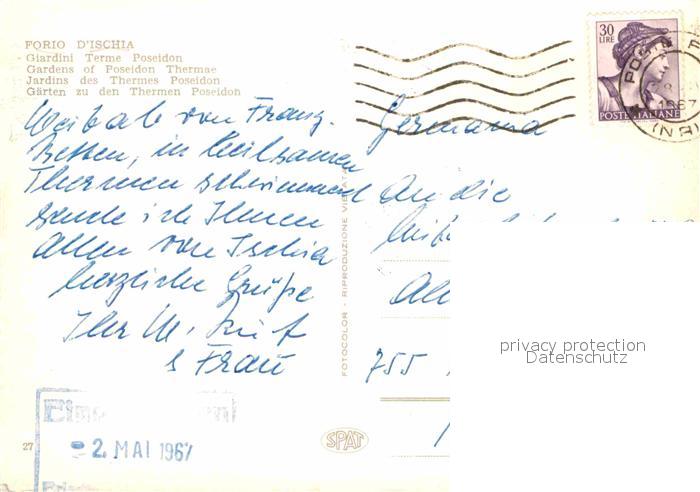 FORIO D'ISCHIA
Giardini Terme Poseidon
Gardens of Poseidon Thermae
Jardins des Thermes Poseidon
Gärten zu den Thermen Poseidon
30
LIRE
POSTE ITALIANE
1967
(NA)
Weitab von
Betten, in heilsamen
Thermen schwimmend
sende ich Ihnen
Allen von Ischia
herzliche Grüße
Ihr
& Frau
FOTOCOLOR - RIPRODUZIONE VIETATA
Germania
An die
755
privacy protection
Datenschutz
2. MAI 1967
27
SPAT